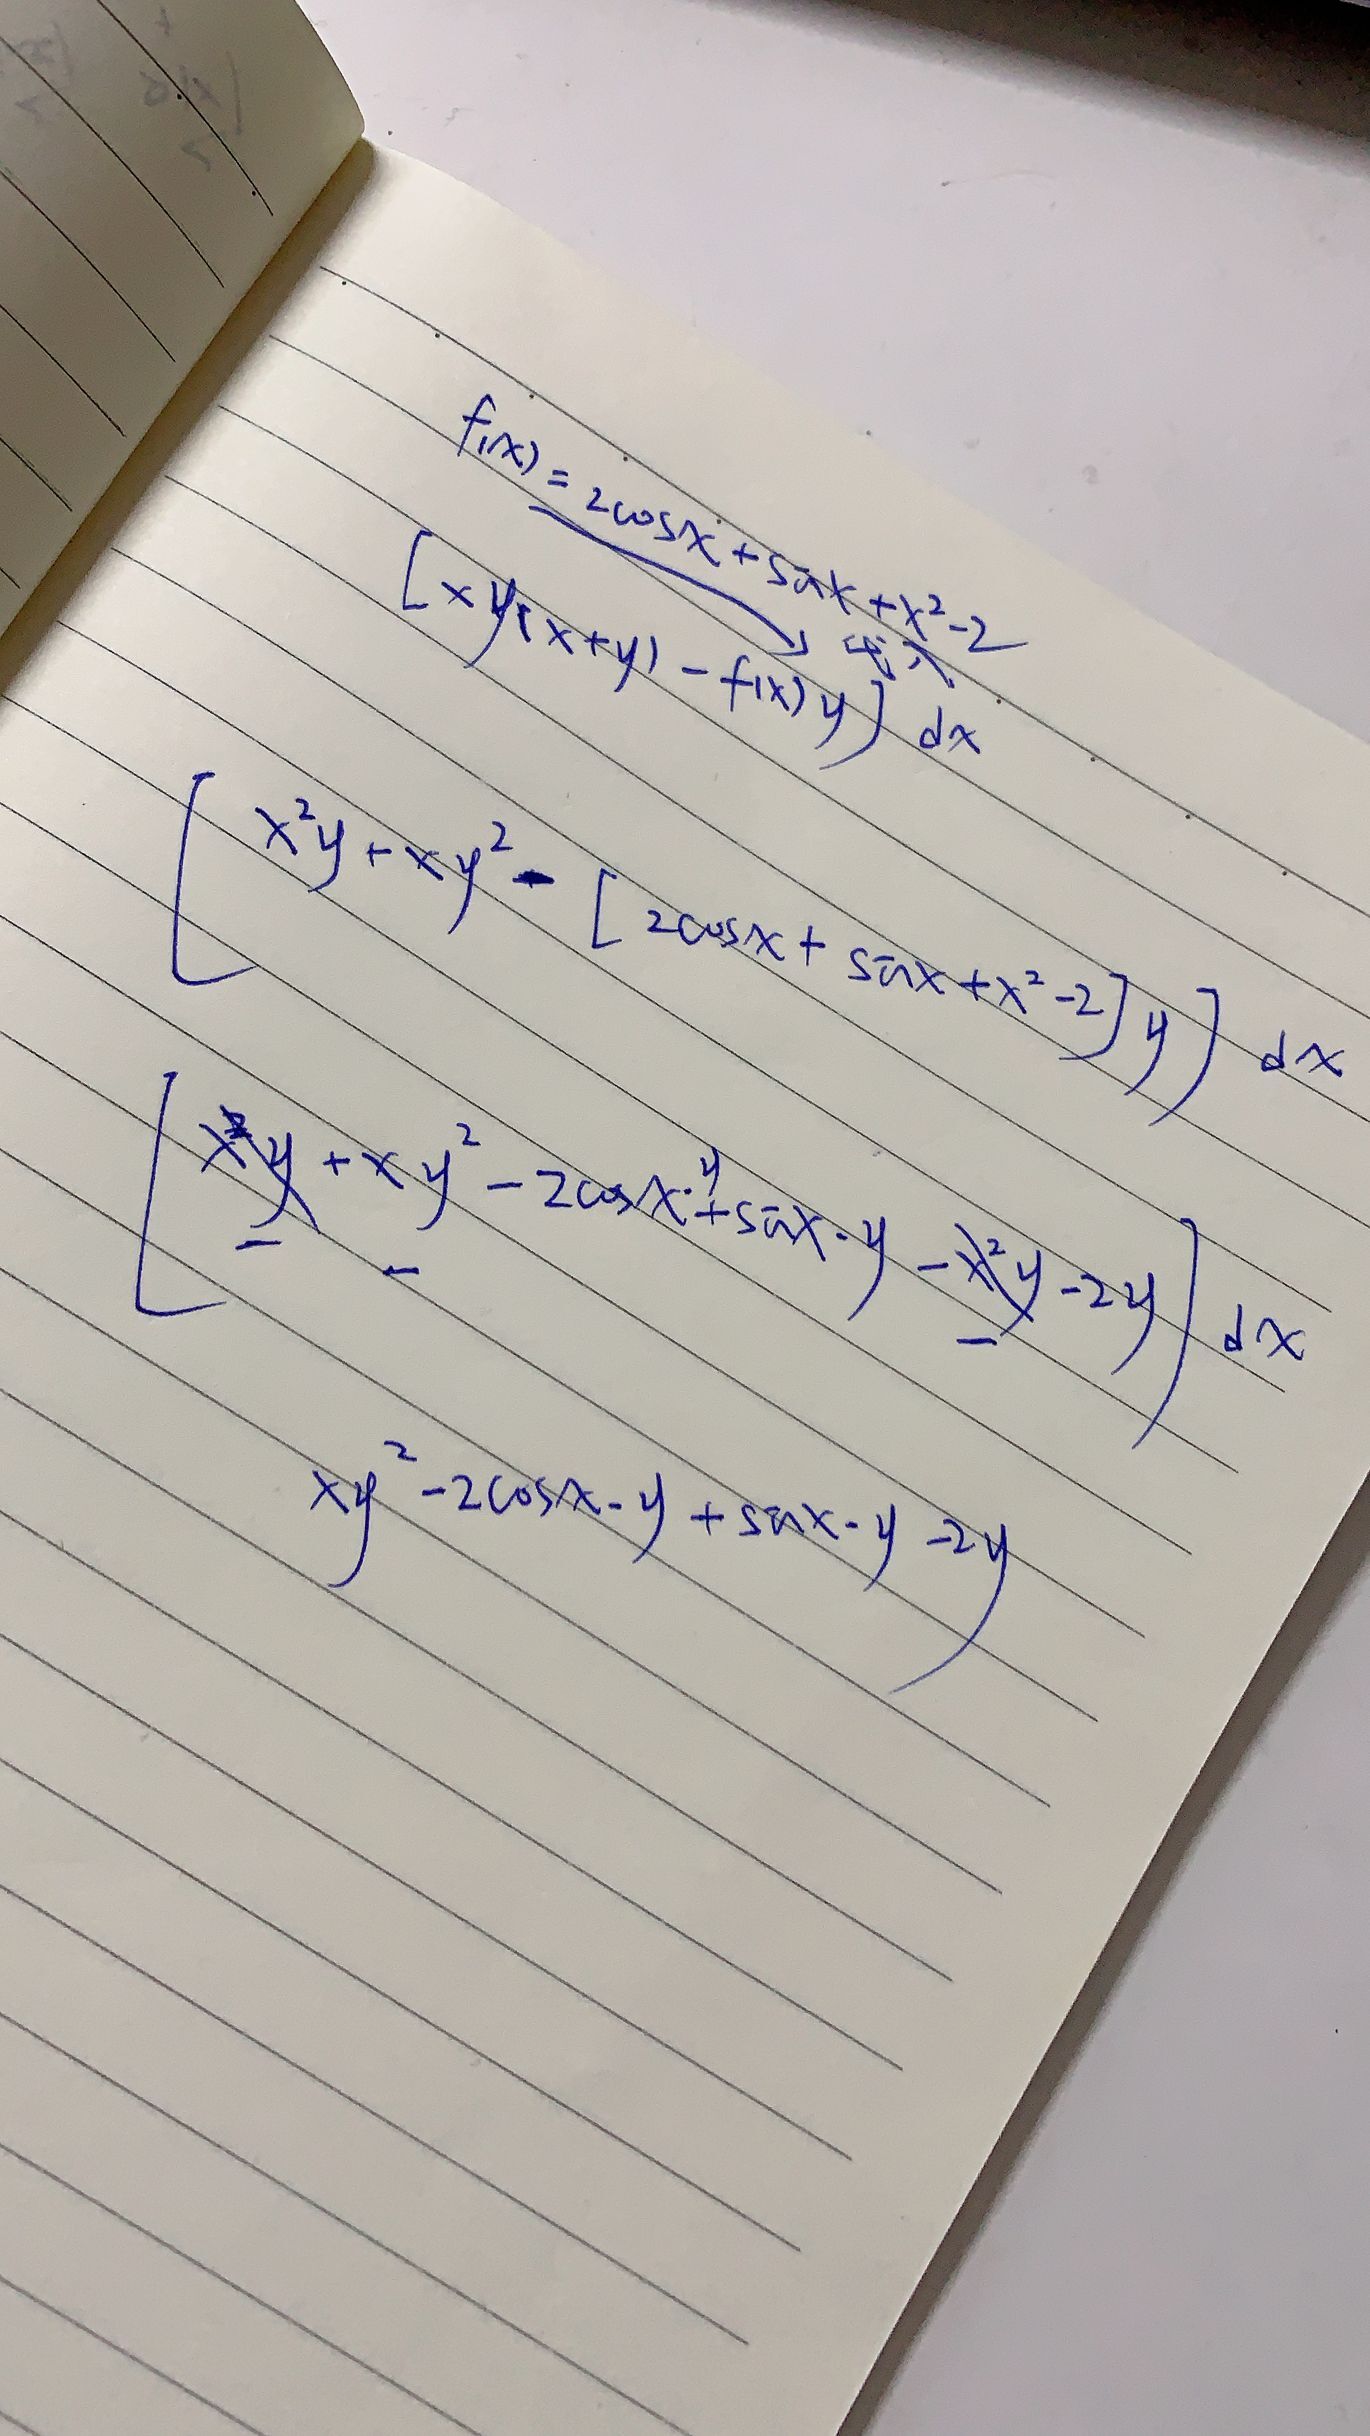 f(x) = 2cosx + sinx + x² - 2
代入
[xy(x+y) - f(x)y] dx
[x²y + xy² - [2cosx + sinx + x² - 2]y] dx
[x²y + xy² - 2cosx·y + sinx·y - x²y - 2y] dx
xy² - 2cosx·y + sinx·y - 2y)